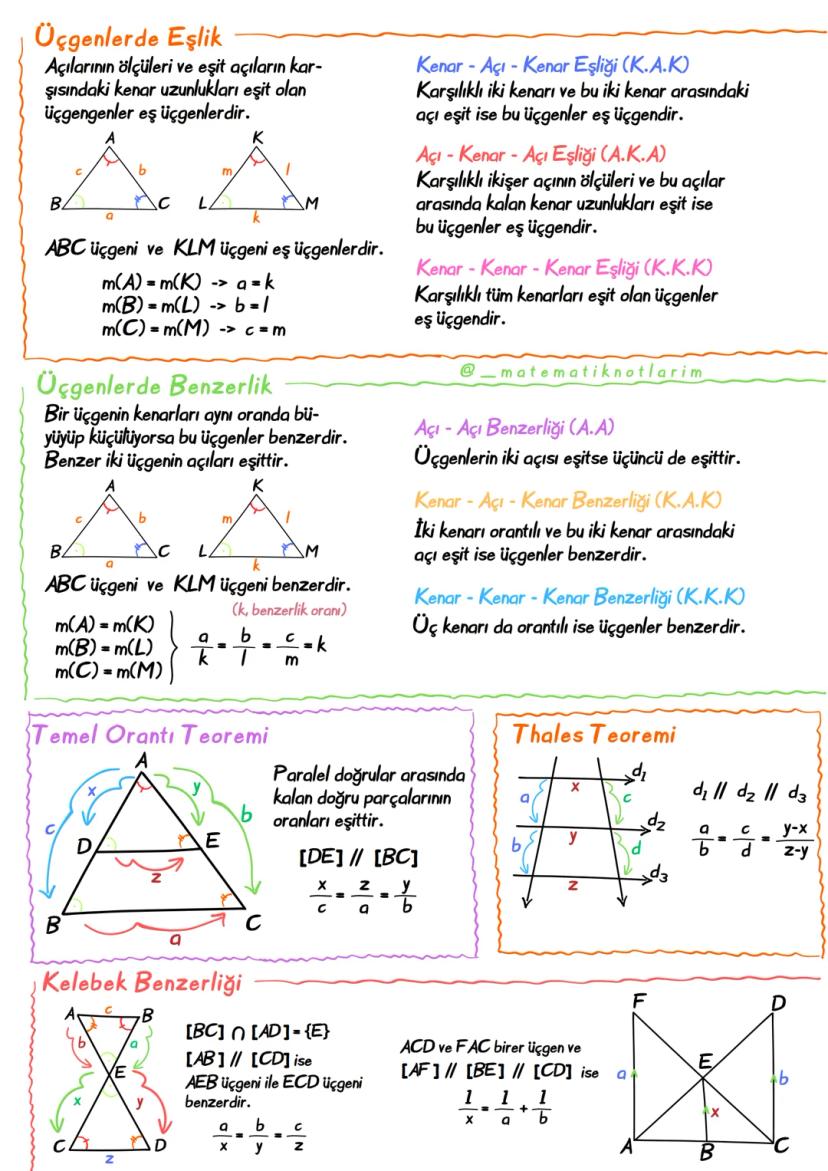 Üçgenlerde Eşlik
Açılarının ölçüleri ve eşit açıların kar-
şısındaki kenar uzunlukları eşit olan
üçgengenler eş üçgenlerdir.
A
c
b
B
C
a
K
m
l
L
M
k
ABC üçgeni ve KLM üçgeni eş üçgenlerdir.
m(A) = m(K) -> a = k
m(B) = m(L) -> b = l
m(C) = m(M) -> c = m
Kenar - Açı - Kenar Eşliği (K.A.K)
Karşılıklı iki kenarı ve bu iki kenar arasındaki
açı eşit ise bu üçgenler eş üçgendir.
Açı - Kenar - Açı Eşliği (A.K.A)
Karşılıklı ikişer açının ölçüleri ve bu açılar
arasında kalan kenar uzunlukları eşit ise
bu üçgenler eş üçgendir.
Kenar - Kenar - Kenar Eşliği (K.K.K)
Karşılıklı tüm kenarları eşit olan üçgenler
eş üçgendir.
@_matematiknotlarim
Üçgenlerde Benzerlik
Bir üçgenin kenarları aynı oranda bü-
yüyüp küçülüyorsa bu üçgenler benzerdir.
Benzer iki üçgenin açıları eşittir.
A
c
b
B
C
a
K
m
l
L
M
k
ABC üçgeni ve KLM üçgeni benzerdir.
(k, benzerlik oranı)
m(A) = m(K)
m(B) = m(L)
m(C) = m(M)
a/k = b/l = c/m = k
Açı - Açı Benzerliği (A.A)
Üçgenlerin iki açısı eşitse üçüncü de eşittir.
Kenar - Açı - Kenar Benzerliği (K.A.K)
İki kenarı orantılı ve bu iki kenar arasındaki
açı eşit ise üçgenler benzerdir.
Kenar - Kenar - Kenar Benzerliği (K.K.K)
Üç kenarı da orantılı ise üçgenler benzerdir.
Temel Orantı Teoremi
A
x
y
c
b
D
E
z
B
C
a
Paralel doğrular arasında
kalan doğru parçalarının
oranları eşittir.
[DE] // [BC]
x/c = z/a = y/b
Thales Teoremi
d1
x
a
c
d2
y
b
d
d3
z
d1 // d2 // d3
a/b = c/d = y-x/z-y
Kelebek Benzerliği
A
c
B
b
a
E
x
y
C
D
z
[BC] ∩ [AD] = {E}
[AB] // [CD] ise
AEB üçgeni ile ECD üçgeni
benzerdir.
a/x = b/y = c/z
ACD ve FAC birer üçgen ve
[AF] // [BE] // [CD] ise
1/x = 1/a + 1/b
F
D
E
a
b
x
A
B
C